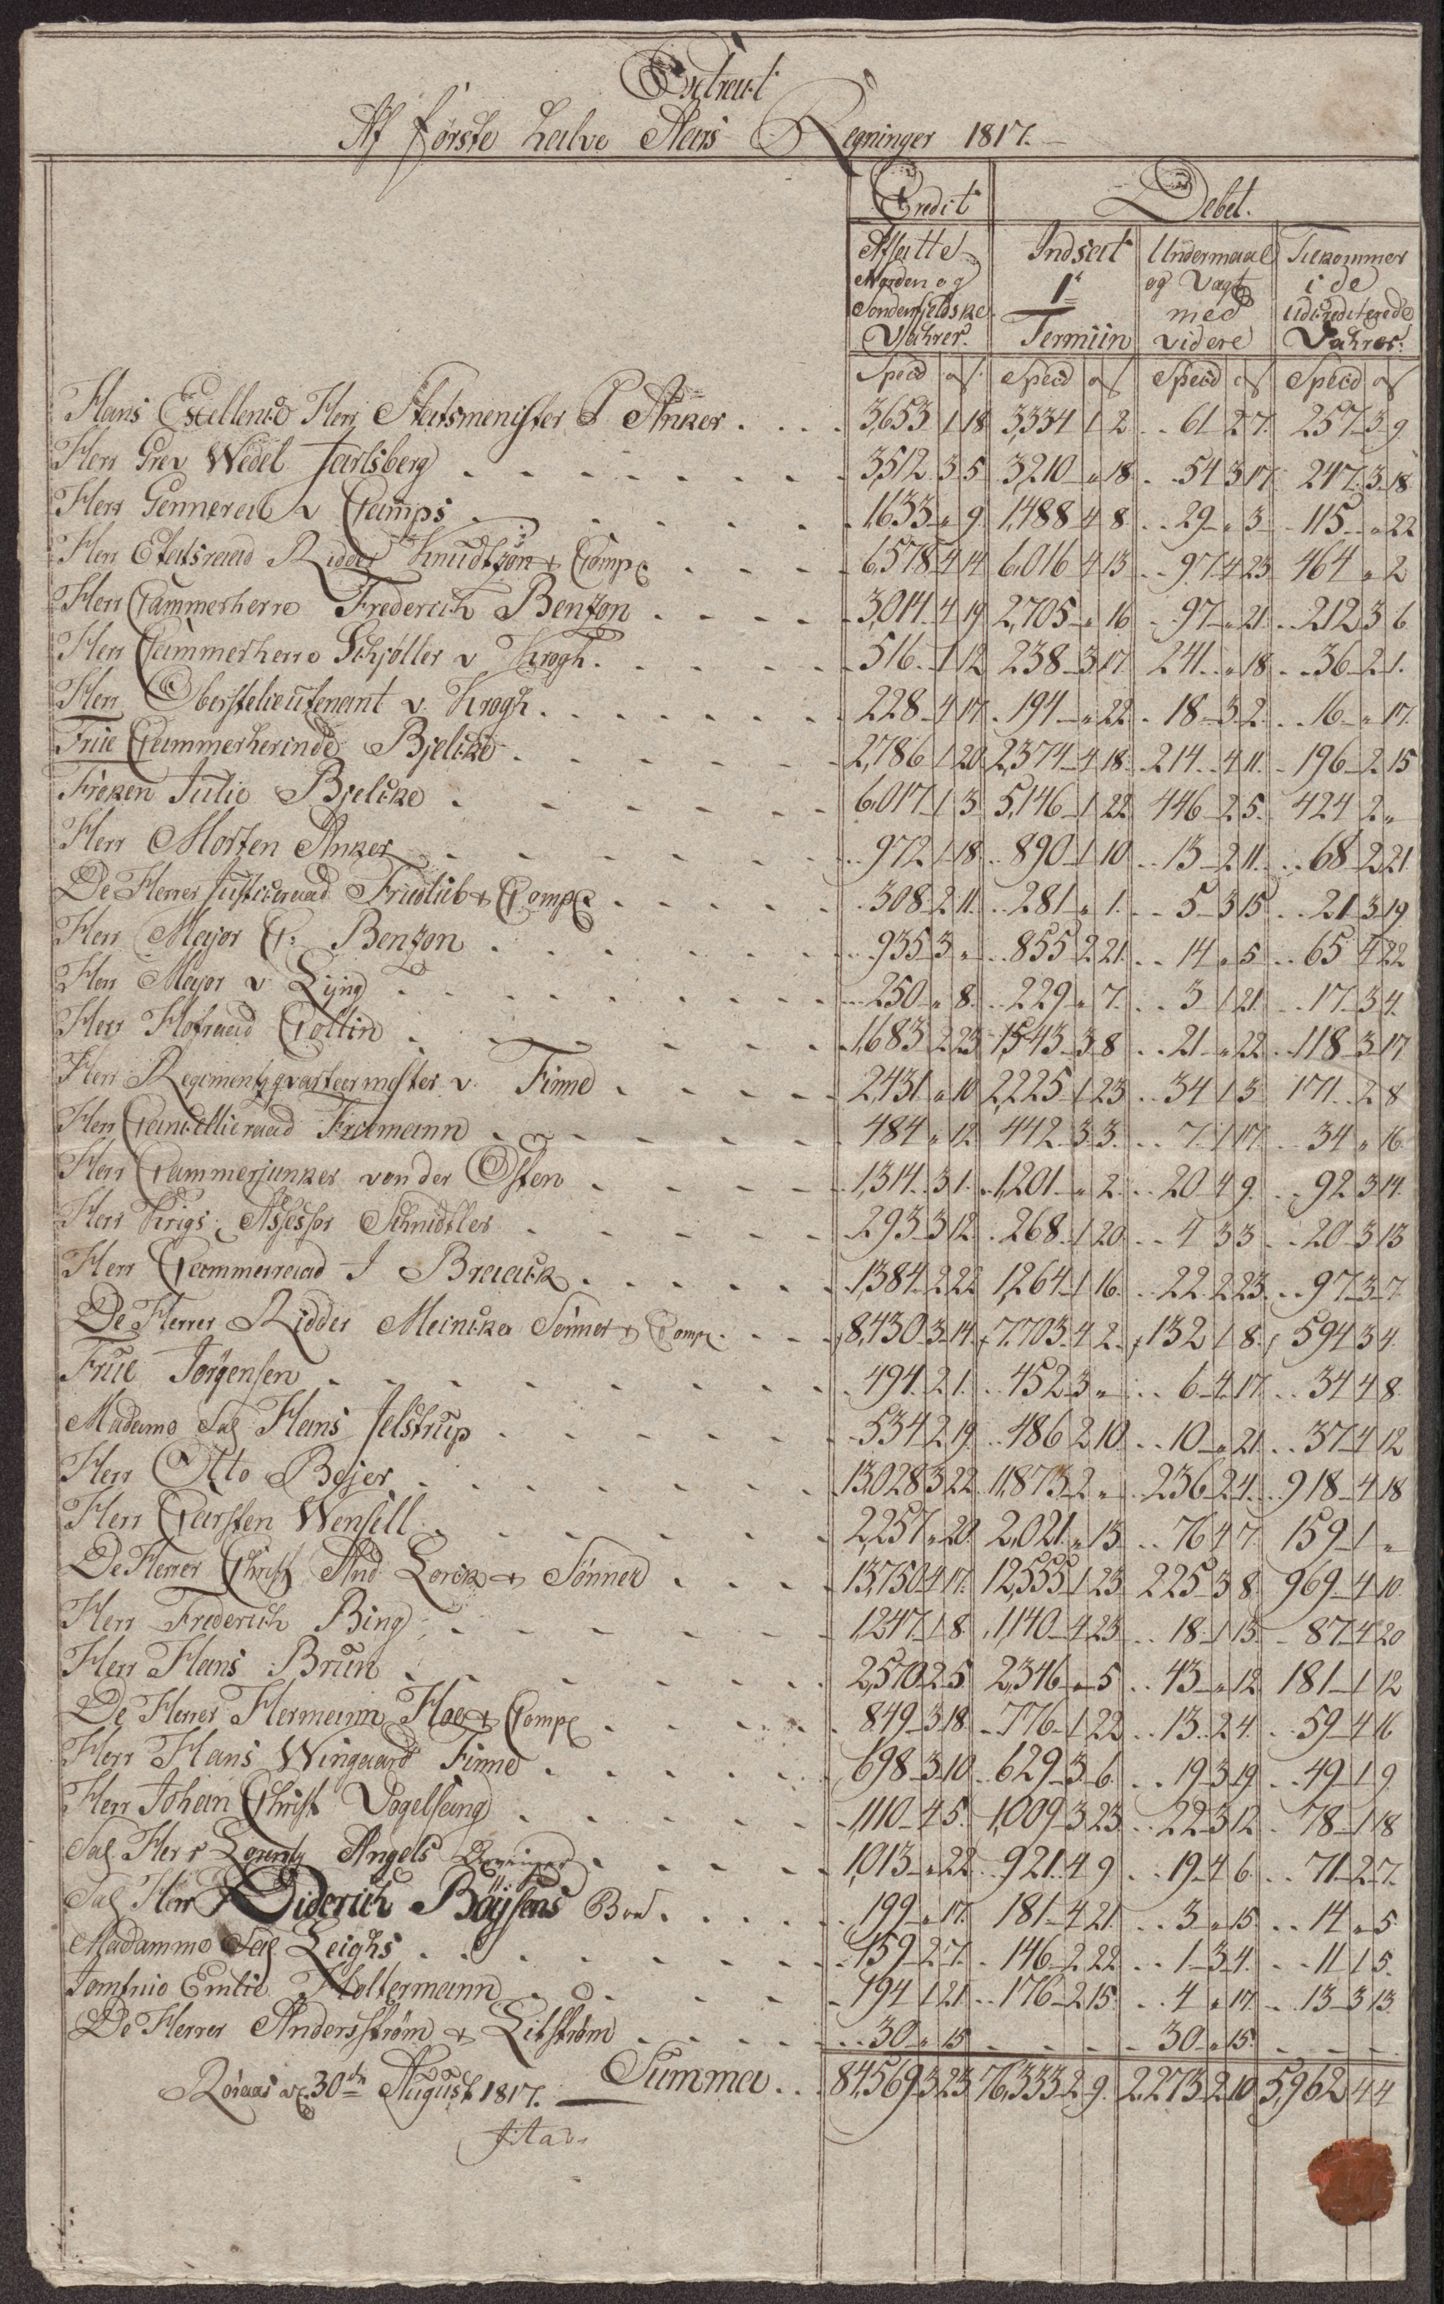 Extract
Af første halve Aars Regninger 1817.
Credit Debet.
Afsatte Norden og Søndenfjeldske Vahrer. Indsat 1te Termiin Undermaal og Vægt med videre Tilkommer i de Udcrediterede Vahrer:
Specd Specd Specd Specd
Hans Excellence Herr Statsmenister P Anker 3,653 1 18 3,334 1 2 61 2 7 257 3 9
Herr Grev Wedel Jarlsberg 3,512 3 5 3,210 " 18 54 3 17 247 3 18
Herr Genneral v Camps 1,633 " 9 1,488 4 8 29 " 3 115 " 22
Herr Etatsraad Ridder Knudtzon & Compe 6,578 4 14 6,016 4 13 97 4 23 464 " 2
Herr Cammerherre Frederich Benzon 3,014 4 19 2,705 " 16 97 " 21 212 3 6
Herr Cammerherre Schjøller v Krogh 516 1 12 238 3 17 241 " 18 36 2 1
Herr Oberstelieutenant v. Krogh 228 4 17 194 " 22 18 3 2 16 " 17
Frue Cammerherinde Bjelcke 2,786 1 20 2,374 4 18 214 4 11 196 2 15
Frøken Julie Bjelcke 6,017 1 3 5,146 1 22 446 2 5 424 2 "
Herr Morten Anker 972 1 18 890 1 10 13 2 11 68 2 21
De Herrer Justiceraad Friedlieb & Compe 308 2 11 281 " 1 5 3 15 21 3 19
Herr Major C: Benzon 935 3 " 855 2 21 14 " 5 65 4 22
Herr Major v Lyng 250 " 8 229 " 7 3 1 21 17 3 4
Herr Hofraad Collin 1,683 2 23 1,543 3 8 21 " 22 118 3 17
Herr Regimentzqvarteermester v. Finne 2,431 " 10 2,225 1 23 34 1 3 171 2 8
Herr Cancellieraad Framann 484 " 12 442 3 3 7 1 17 34 " 16
Herr Cammerjunker von der Osten 1,314 3 1 1,201 " 2 20 4 9 92 3 14
Herr Krigs Assessor Schnidtler 293 3 12 268 1 20 4 3 3 20 3 13
Herr Commerraad J Braack 1,384 2 22 1,264 1 16 22 2 23 97 3 7
De Herrer Ridder Meincke Sønner & Compe 8,430 3 14 7,703 4 2 132 1 8 594 3 4
Frue Jørgensen 494 2 1 452 3 " 6 4 17 34 4 8
Madame Sal Hans Jelstrup 534 2 19 486 2 10 10 " 21 37 4 12
Herr Otto Bejer 13,028 3 22 11,873 2 " 236 2 4 918 4 18
Herr Carsten Wensell 2,257 " 20 2,021 " 13 76 4 7 159 1 "
De Herrer Christ And Lorck & Sønner 13,750 4 17 12,555 1 23 225 3 8 969 4 10
Herr Frederich Bing 1,247 1 8 1,140 4 23 18 1 13 87 4 20
Herr Hans Brun 2,570 2 5 2,346 " 5 43 " 12 181 1 12
De Herrer Hermann Hoe & Compe 849 3 18 776 1 22 13 2 4 59 4 16
Herr Hans Wingaard Finne 698 3 10 629 3 6 19 3 19 49 1 9
Herr Johan Christ Vogelsang 1,110 4 5 1,009 3 23 22 3 12 78 1 18
Sal Herr Lorentz Angels 1,013 " 22 921 4 9 19 4 6 71 2 7
Sal Herr Diderich Böÿsens Boe 199 " 17 181 4 21 3 " 15 14 " 5
Madamme Sal Leighs 159 2 7 146 2 22 1 3 4 11 1 5
Jomfrue Emilie Holtermann 194 1 21 176 2 15 4 " 17 13 3 13
De Herrer Andersstrøm & Litstrøm 30 " 15 30 " 15
Røraas d. 30te August 1817. Summa 84,569 3 23 76,333 2 9 2,273 2 10 5,962 4 4